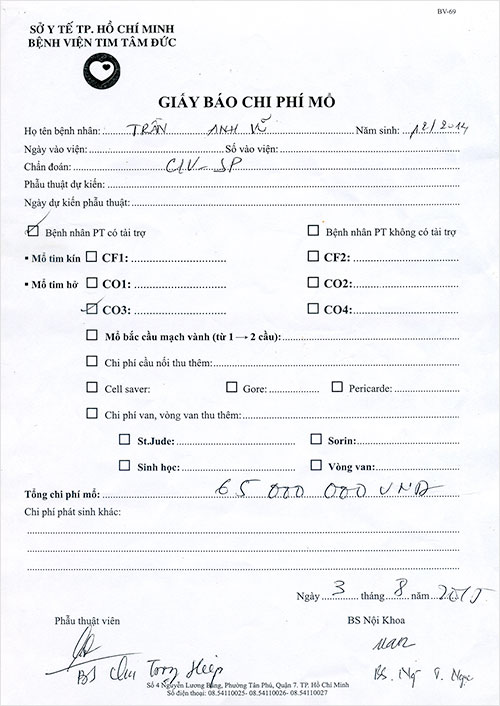 BV-69
SỞ Y TẾ TP. HỒ CHÍ MINH
BỆNH VIỆN TIM TÂM ĐỨC
GIẤY BÁO CHI PHÍ MỔ
Họ tên bệnh nhân: TRẦN ANH VŨ Năm sinh: 12/2014
Ngày vào viện: Số vào viện:
Chẩn đoán: CIV-SP
Phẫu thuật dự kiến:
Ngày dự kiến phẫu thuật:
Bệnh nhân PT có tài trợ Bệnh nhân PT không có tài trợ
• Mổ tim kín CF1: CF2:
• Mổ tim hở CO1: CO2:
CO3: CO4:
Mổ bắc cầu mạch vành (từ 1 → 2 cầu):
Chi phí cầu nối thu thêm:
Cell saver: Gore: Pericarde:
Chi phí van, vòng van thu thêm:
St.Jude: Sorin:
Sinh học: Vòng van:
Tổng chi phí mổ: 65 000 000 VNĐ
Chi phí phát sinh khác:
Ngày 3 tháng 8 năm 2015
Phẫu thuật viên BS Nội Khoa
BS Chu Trọng Hiệp BS. Ng T. Ngọc
Số 4 Nguyễn Lương Bằng, Phường Tân Phú, Quận 7. TP. Hồ Chí Minh
Số điện thoại: 08.54110025- 08.54110026- 08.54110027